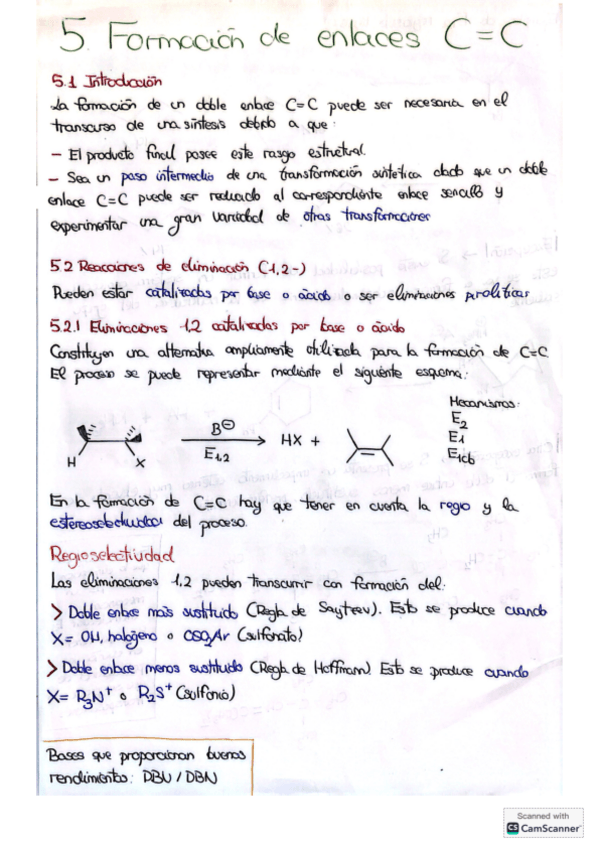 5. Formación de enlaces C=C
5.1 Introducción
La formación de un doble enlace C=C puede ser necesaria en el
transcurso de una síntesis debido a que:
- El producto final posee este rasgo estructural.
- Sea un paso intermedio de una transformación sintética dado que un doble
enlace C=C puede ser reducido al correspondiente enlace sencillo y
experimentar una gran variedad de otras transformaciones
5.2 Reacciones de eliminación (1,2-)
Pueden estar catalizadas por base o ácido o ser eliminaciones pirolíticas
5.2.1 Eliminaciones 1,2 catalizadas por base o ácido
Constituyen una alternativa ampliamente utilizada para la formación de C=C
El proceso se puede representar mediante el siguiente esquema:
Mecanismos:
E2
E1
E1cb
H X B⊖ E1,2 HX +
En la formación de C=C hay que tener en cuenta la regio y la
estereoselectividad del proceso.
Regioselectividad
Las eliminaciones 1,2 pueden transcurrir con formación del:
> Doble enlace más sustituido (Regla de Sayteev). Esto se produce cuando
X= OH, halógeno o OSO2Ar (sulfonato)
> Doble enlace menos sustituido (Regla de Hoffman). Esto se produce cuando
X= R3N+ o R2S+ (sulfonio)
Bases que proporcionan buenos
rendimientos: DBU / DBN
Scanned with
CS CamScanner